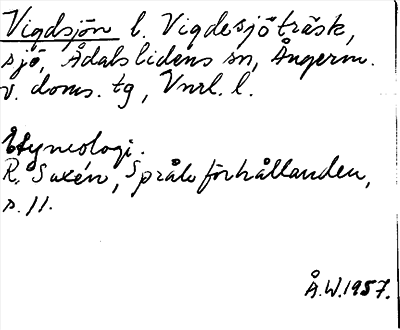 Vigdsjön l. Vigdesjöträsk,
sjö, Ådalslidens sn, Ångerm.
v. doms. tg, Vnrl. l.
Etymologi.
R. Saxén, Språkförhållanden,
s. 11.
Å.W. 1957.